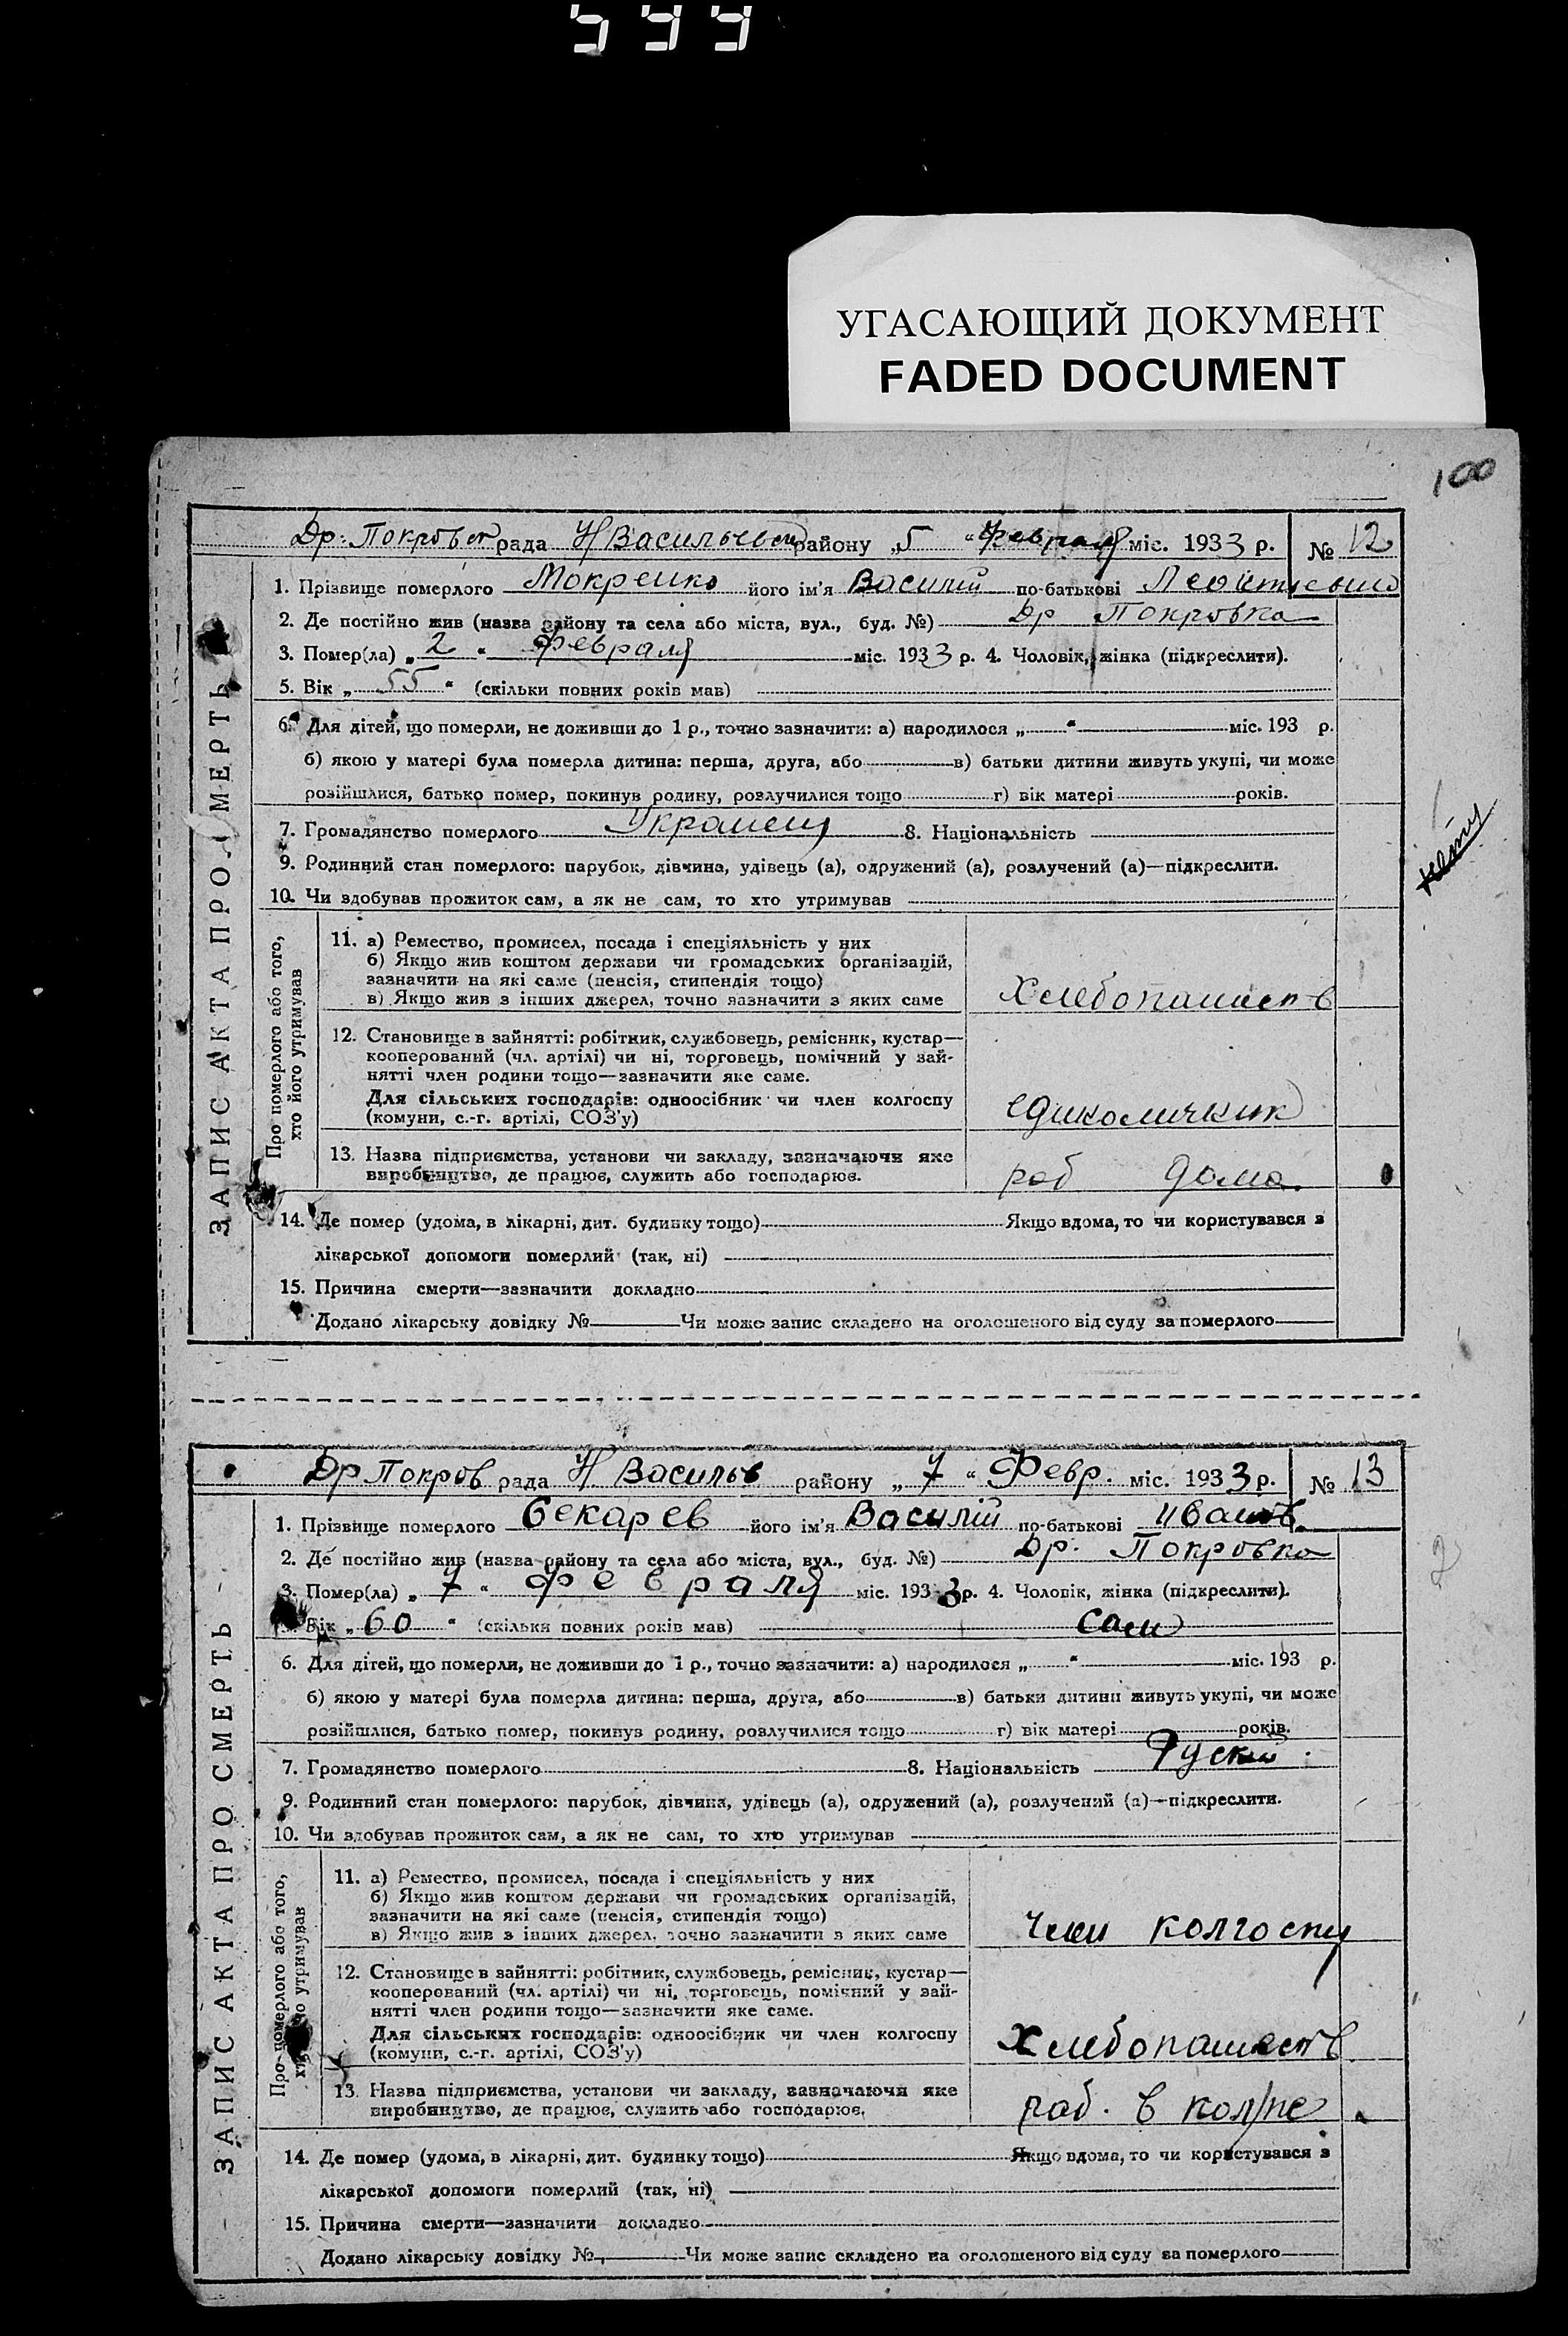 599
УГАСАЮЩИЙ ДОКУМЕНТ
FADED DOCUMENT
100
Др. Покровск рада Н Васильевск району „5“ Февраля міс. 1933 р. № 12
ЗАПИС АКТА ПРО СМЕРТЬ
1. Прізвище померлого Мокренко його ім'я Василій по-батькові
2. Де постійно жив (назва району та села або міста, вул., буд. №) Др Покровка
3. Помер(ла) „2“ февраля міс. 1933 р. 4. Чоловік, жінка (підкреслити).
5. Вік „55“ (скільки повних років мав)
6. Для дітей, що померли, не доживши до 1 р., точно зазначити: а) народилося „ “ міс. 193 р.
б) якою у матері була померла дитина: перша, друга, або в) батьки дитини живуть укупі, чи може
розійшлися, батько помер, покинув родину, розлучилися тощо г) вік матері років.
7. Громадянство померлого Украинец 8. Національність
9. Родинний стан померлого: парубок, дівчина, удівець (а), одружений (а), розлучений (а)—підкреслити.
10. Чи здобував прожиток сам, а як не сам, то хто утримував
Про померлого або того,
хто його утримував
11. а) Ремество, промисел, посада і спеціяльність у них
б) Якщо жив коштом держави чи громадських організацій,
зазначити на які саме (пенсія, стипендія тощо)
в) Якщо жив з інших джерел, точно зазначити з яких саме
Хлебопашеств
12. Становище в зайнятті: робітник, службовець, ремісник, кустар—
кооперований (чл. артілі) чи ні, торговець, помічний у зай-
нятті член родини тощо—зазначити яке саме.
Для сільських господарів: одноосібник чи член колгоспу
(комуни, с.-г. артілі, СОЗ'у)
единоличник
13. Назва підприємства, установи чи закладу, зазначаючи яке
виробництво, де працює, служить або господарює.
раб дома.
14. Де помер (удома, в лікарні, дит. будинку тощо) Якщо вдома, то чи користувався з
лікарської допомоги померлий (так, ні)
15. Причина смерти—зазначити докладно
Додано лікарську довідку № Чи може запис складено на оголошеного від суду за померлого
Др Покров рада Н Васильев району „7“ Февр. міс. 1933 р. № 13
ЗАПИС АКТА ПРО СМЕРТЬ
1. Прізвище померлого Секарев його ім'я Василій по-батькові Иванов.
2. Де постійно жив (назва району та села або міста, вул., буд. №) Др. Покровка
3. Помер(ла) „7“ февраля міс. 1933 р. 4. Чоловік, жінка (підкреслити).
5. Вік „60“ (скільки повних років мав) сам
6. Для дітей, що померли, не доживши до 1 р., точно зазначити: а) народилося „ “ міс. 193 р.
б) якою у матері була померла дитина: перша, друга, або в) батьки дитини живуть укупі, чи може
розійшлися, батько помер, покинув родину, розлучилися тощо г) вік матері років.
7. Громадянство померлого 8. Національність Руский.
9. Родинний стан померлого: парубок, дівчина, удівець (а), одружений (а), розлучений (а)—підкреслити.
10. Чи здобував прожиток сам, а як не сам, то хто утримував
Про померлого або того,
хто його утримував
11. а) Ремество, промисел, посада і спеціяльність у них
б) Якщо жив коштом держави чи громадських організацій,
зазначити на які саме (пенсія, стипендія тощо)
в) Якщо жив з інших джерел, точно зазначити з яких саме
член колгоспу
12. Становище в зайнятті: робітник, службовець, ремісник, кустар—
кооперований (чл. артілі) чи ні, торговець, помічний у зай-
нятті член родини тощо—зазначити яке саме.
Для сільських господарів: одноосібник чи член колгоспу
(комуни, с.-г. артілі, СОЗ'у)
Хлебопашеств.
13. Назва підприємства, установи чи закладу, зазначаючи яке
виробництво, де працює, служить або господарює.
раб. в кол/пе
14. Де помер (удома, в лікарні, дит. будинку тощо) Якщо вдома, то чи користувався з
лікарської допомоги померлий (так, ні)
15. Причина смерти—зазначити докладно
Додано лікарську довідку № Чи може запис складено на оголошеного від суду за померлого
2